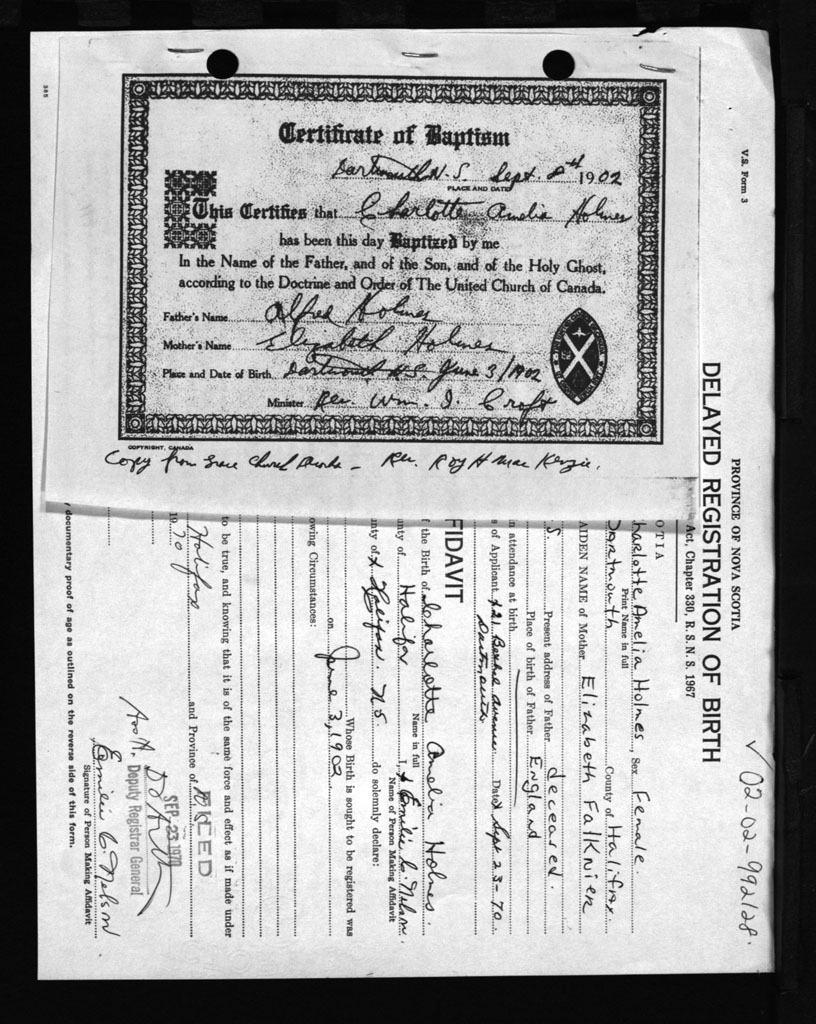 Certificate of Baptism
Dartmouth N.S. Sept. 8th 1902
PLACE AND DATE
This Certifies that Charlotte Amelia Holmes
has been this day Baptized by me
In the Name of the Father, and of the Son, and of the Holy Ghost,
according to the Doctrine and Order of The United Church of Canada.
Father's Name Alfred Holmes
Mother's Name Elizabeth Holmes
Place and Date of Birth Dartmouth N.S. June 3/1902
Minister Rev. Wm. I. Croft
COPYRIGHT, CANADA
Copy from Grace Church Books - Rev. Roy H MacKenzie.
V.S. Form 3
PROVINCE OF NOVA SCOTIA
DELAYED REGISTRATION OF BIRTH
Act, Chapter 330, R.S.N.S. 1967
✓ 02-02-992128.
OTIA
harlotte Amelia Holmes, Sex Female.
Print Name in full
Dartmouth County of Halifax
AIDEN NAME of Mother Elizabeth Falkner
S. Present address of Father deceased.
Place of birth of Father England
n attendance at birth
s of Applicant Avenue Dated Sept 23-70
Dartmouth
FIDAVIT
f the Birth of Charlotte Amelia Holmes.
Name in full
unty of Halifax I, x Emilie C. Nelson.
Name of Person Making Affidavit
nty of x Halifax N.S. do solemnly declare:
Whose Birth is sought to be registered was
on June 3, 1902
owing Circumstances:
to be true, and knowing that it is of the same force and effect as if made under
Halifax and Province of N.S.
1970
SEP 23 1970
Deputy Registrar General
Emilie C. Nelson
Signature of Person Making Affidavit
documentary proof of age as outlined on the reverse side of this form.